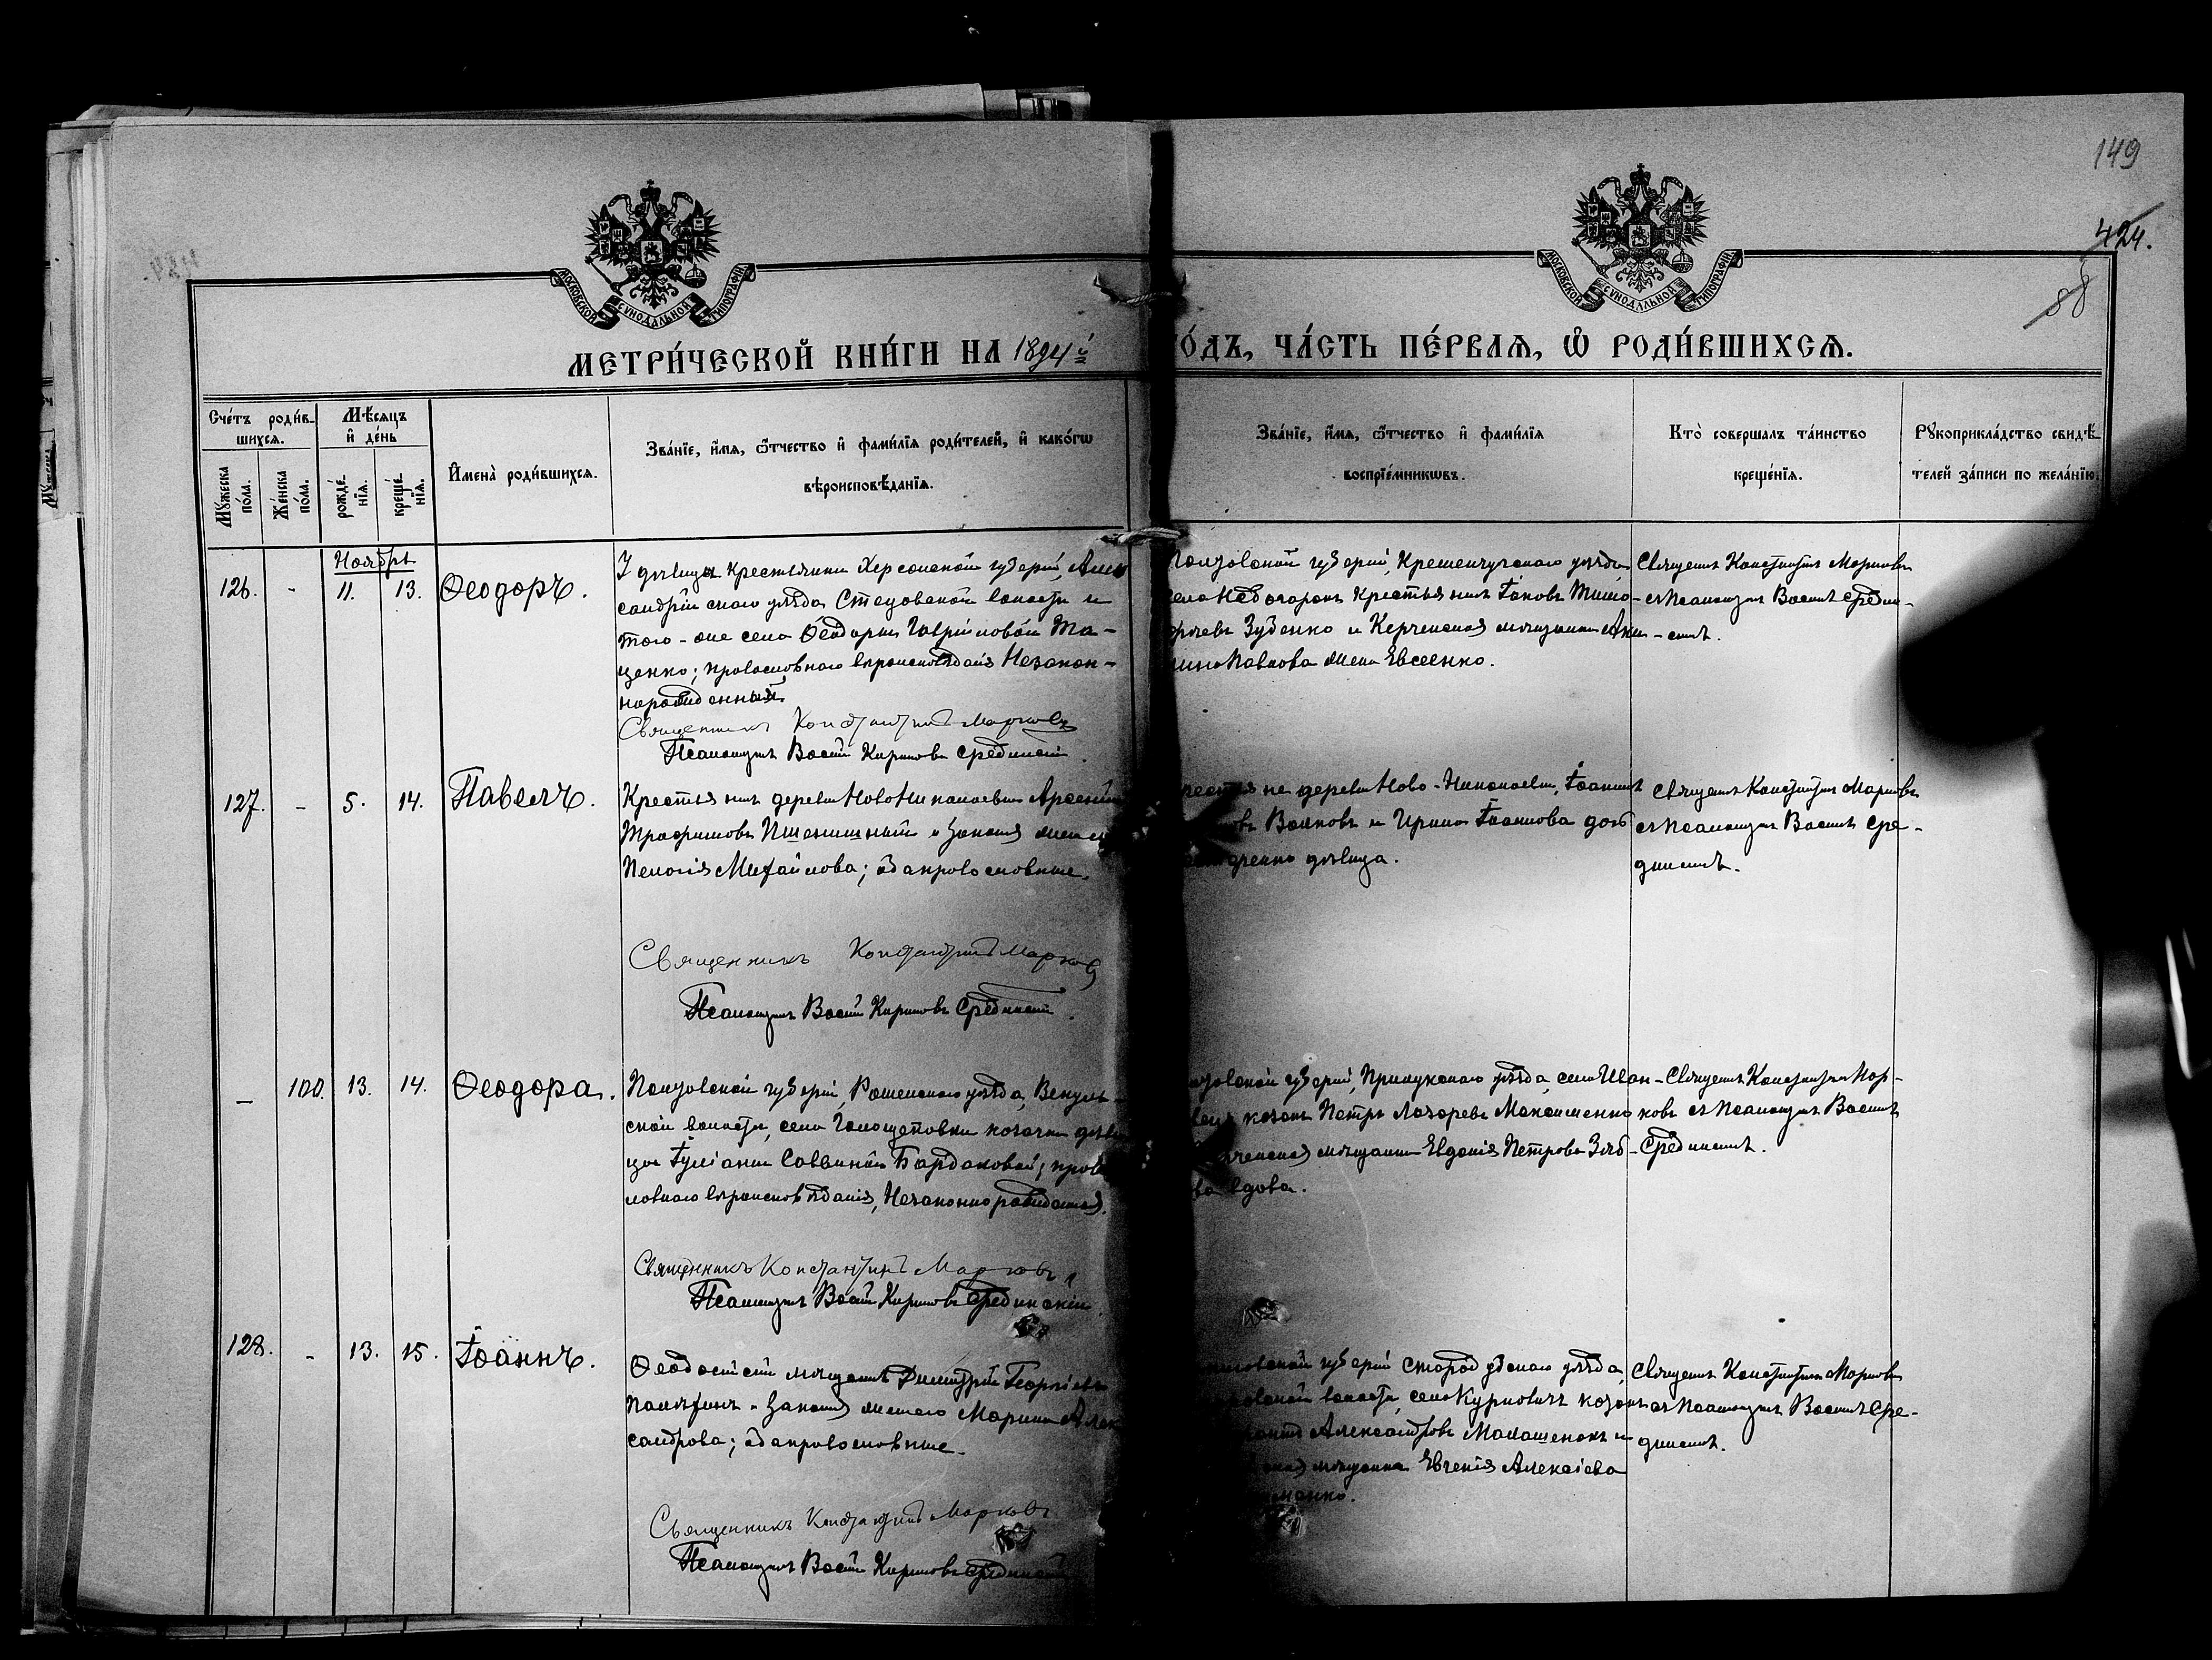 149
424.
88
МОСКОВСКОЙ СѴНОДАЛЬНОЙ ТИПОГРАФІИ
МОСКОВСКОЙ СѴНОДАЛЬНОЙ ТИПОГРАФІИ
МЕТРИ́ЧЕСКОЙ КНИ́ГИ НА 1894й
О́ДЪ, ЧА́СТЬ ПЕ́РВАЯ, Ѡ҆ РОДИ́ВШИХСЯ.
Сче́тъ роди́в-
шихся.
Мꙋжеска по́ла.
Же́нска по́ла.
Мѣ́сяцъ и҆ де́нь
рожде́нїя.
креще́нїя.
И҆мена̀ роди́вшихся.
Зва́нїе, и҆́мя, ѻ҆́тчество и҆ фами́лїя роди́телей, и҆ како́гѡ
вѣроисповѣ́данїя.
Зва́нїе, и҆́мя, ѻ҆́тчество и҆ фами́лїя
воспрїе́мникѡвъ.
Кто̀ соверша́лъ та́инство
креще́нїя.
Рꙋкоприкла́дство свидѣ́-
телей за́писи по жела́нїю.
Ноябрь
126. - 11. 13. Ѳеодоръ.
У дѣвицы крестьянки Херсонской губерніи, Алек
сандрійскаго уѣзда Стецовской волости и
того-же села Ѳеодоры Гавріиловой Та-
ценко; православнаго вѣроисповѣданія Незакон-
норожденный.
Священникъ Константинъ Марковъ
Псаломщикъ Василій Кириловъ Срединскій
Полтавской губерніи, Кременчугскаго уѣзда,
села крестьянинъ Іаковъ Тимо-
феевъ Зубенко и Керченская мѣщанка Аку-
лина Павлова жена Евсеенко.
Священникъ Константинъ Марковъ
съ псаломщик. Василіемъ Средин-
скимъ.
127. - 5. 14. Павелъ.
Крестьянинъ деревни Ново Николаевки Арсеній
Трофимовъ Пшеничный и законная жена его
Пелагія Михайлова; оба православные.
Священникъ Константинъ Марковъ
Псаломщикъ Василій Кириловъ Срединскій.
деревни Ново-Николаевки, Іоаннъ
Волковъ и Ирина Іоаннова дочь
дѣвица.
Священникъ Константинъ Марковъ
съ псаломщик. Василіемъ Сре-
динскимъ.
- 100. 13. 14. Ѳеодора.
Полтавской губерніи, Роменскаго уѣзда,
ской волости, села козачки дѣви
цы Іуліаніи Саввиной Бардаковой; право
славнаго вѣроисповѣданія, Незаконнорожденная.
Священникъ Константинъ Марковъ
Псаломщикъ Василій Кириловъ Срединскій.
губерніи, Прилукскаго уѣзда, села Иван-
козакъ Петръ Лазаревъ Максименко
мѣщанка Евдокія Петрова
вдова.
Священникъ Константинъ Мар-
ковъ съ псаломщик. Василіемъ
Срединскимъ.
128. - 13. 15. Іоаннъ.
Ѳеодосійскій мѣщанинъ Димитрій Георгіевъ
и законная жена его Марина Алек
сандрова; оба православные.
Священникъ Константинъ Марковъ
Псаломщикъ Василій Кириловъ Срединскій
губерніи Стародубскаго уѣзда,
волости, села Курковичъ козакъ
Александровъ Малашенокъ и
мѣщанка Евгенія Алексіева
Священникъ Константинъ Марковъ
съ псаломщик. Василіемъ Сре-
динскимъ.